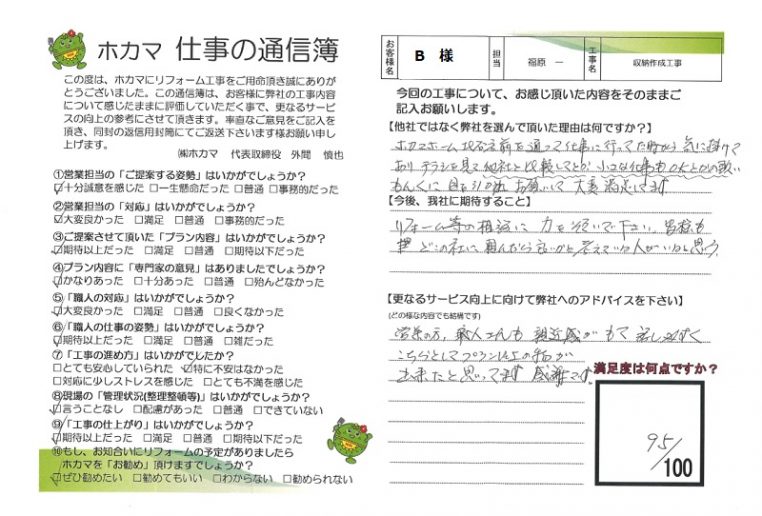 ホカマ 仕事の通信簿
この度は、ホカマにリフォーム工事をご用命頂き誠にありが
とうございました。この通信簿は、お客様に弊社の工事内容
について感じたままに評価していただく事で、更なるサービ
スの向上の参考にさせて頂きます。率直なご意見をご記入を
頂き、同封の返信用封筒にてご返送下さいます様お願い申し
上げます。
㈱ホカマ 代表取締役 外間 慎也
①営業担当の「ご提案する姿勢」はいかがでしょうか?
□十分誠意を感じた □一生懸命だった □普通 □事務的だった
②営業担当の「対応」はいかがでしょうか?
□大変良かった □満足 □普通 □事務的だった
③ご提案させて頂いた「プラン内容」はいかがでしょうか?
□期待以上だった □満足 □普通 □期待以下だった
④プラン内容に「専門家の意見」はありましたでしょうか?
□かなりあった □十分あった □普通 □殆んどなかった
⑤「職人の対応」はいかがでしょうか?
□大変良かった □満足 □普通 □良くなかった
⑥「職人の仕事の姿勢」はいかがでしょうか?
□期待以上だった □満足 □普通 □雑だった
⑦「工事の進め方」はいかがでしたか?
□とても安心していられた □特に不安はなかった
□対応に少しストレスを感じた □とても不満を感じた
⑧現場の「管理状況(整理整頓等)」はいかがでしょうか?
□言うことなし □配慮があった □普通 □できていない
⑨「工事の仕上がり」はいかがでしょうか?
□期待以上だった □満足 □普通 □期待以下だった
⑩もし、お知合いにリフォームの予定がありましたら
ホカマを「お勧め」頂けますでしょうか?
□ぜひ勧めたい □勧めてもいい □わからない □勧められない
お客様名 B 様 担当 福原 一 工事名 収納作成工事
今回の工事について、お感じ頂いた内容をそのままご
記入お願いします。
【他社ではなく弊社を選んで頂いた理由は何ですか?】
前を通って仕事に行ってた時から気に掛けて
あり チラシを見て他社と比較して
お願いして 大変満足してます
【今後、我社に期待すること】
リフォーム等の相談に 力を注いで下さい。皆様も
どこの社に頼んだら良いかと考えている人がいると思う
【更なるサービス向上に向けて弊社へのアドバイスを下さい】
(どの様な内容でも結構です)
営業の方、職人さんも 親近感がもて 話しやすく
こちらとしてプラン以上の物が
出来たと思ってます 感謝です。
満足度は何点ですか?
95/100